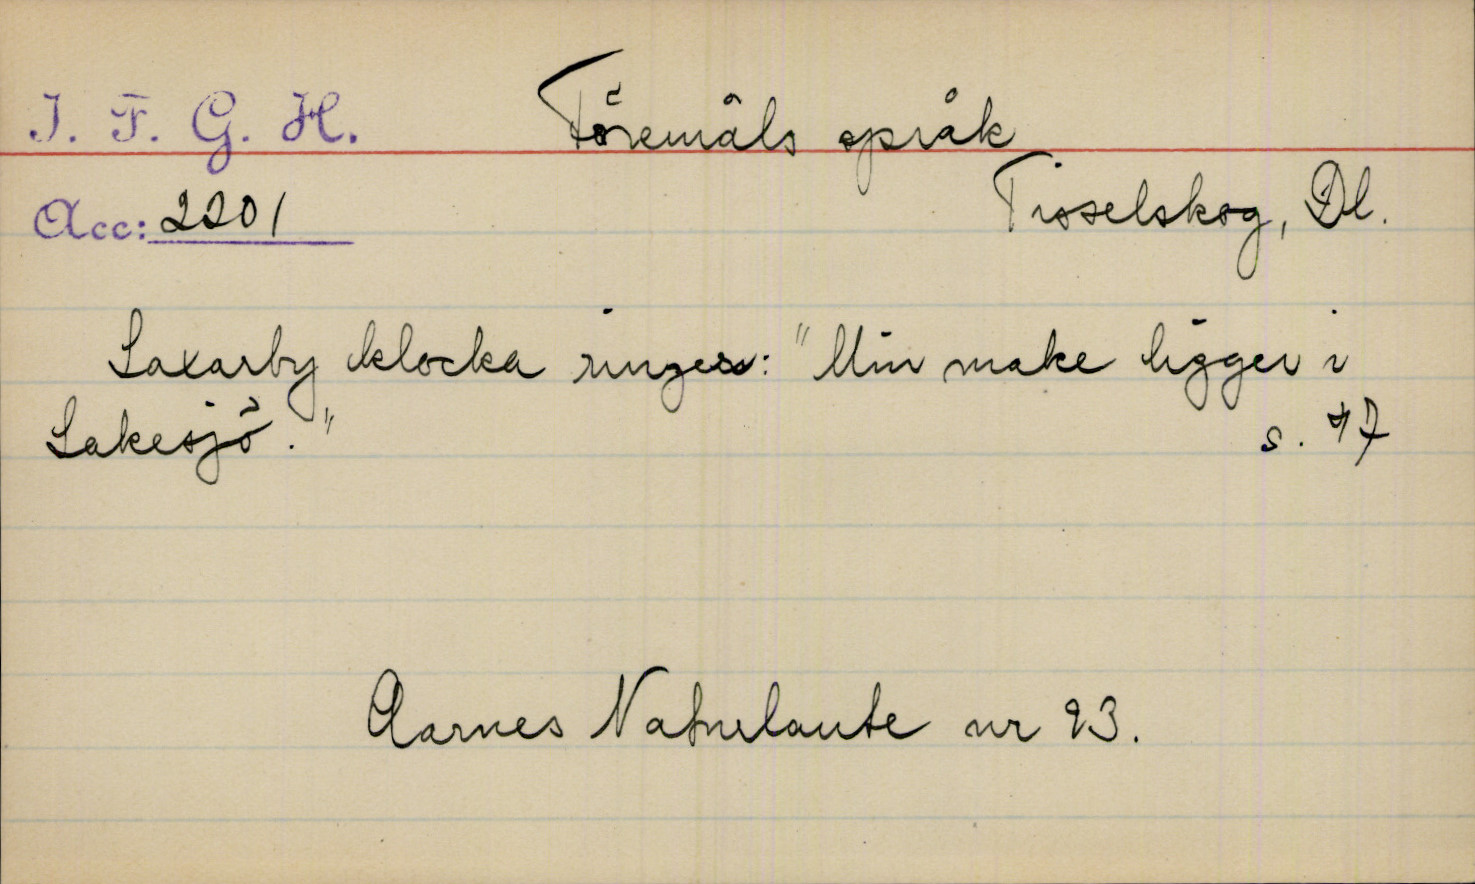 I. F. G. H. Föremåls språk
Acc: 2201 Tisselskog, Dl.
Laxarby klocka ringer: "Min make ligger i
Lakesjö." s. 47
Aarnes Naturlaute nr 93.